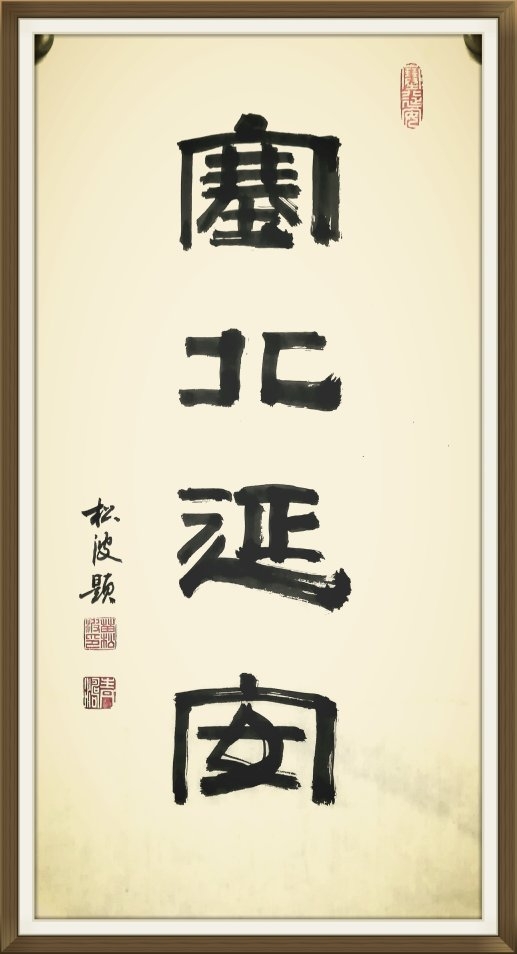 塞北延安
松波题